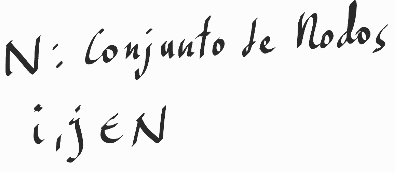 N: Conjunto de Nodos
i, j ∈ N